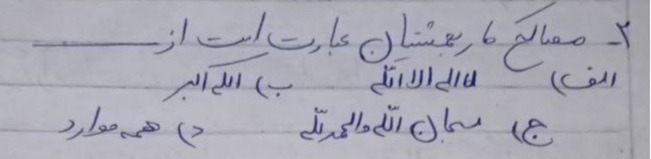 ۲- مصالح کار بهشتیان عبارت است از ـــــــــــــ
الف) لا اله الا الله ب) الله اکبر
ج) سبحان الله والحمد لله د) همه موارد